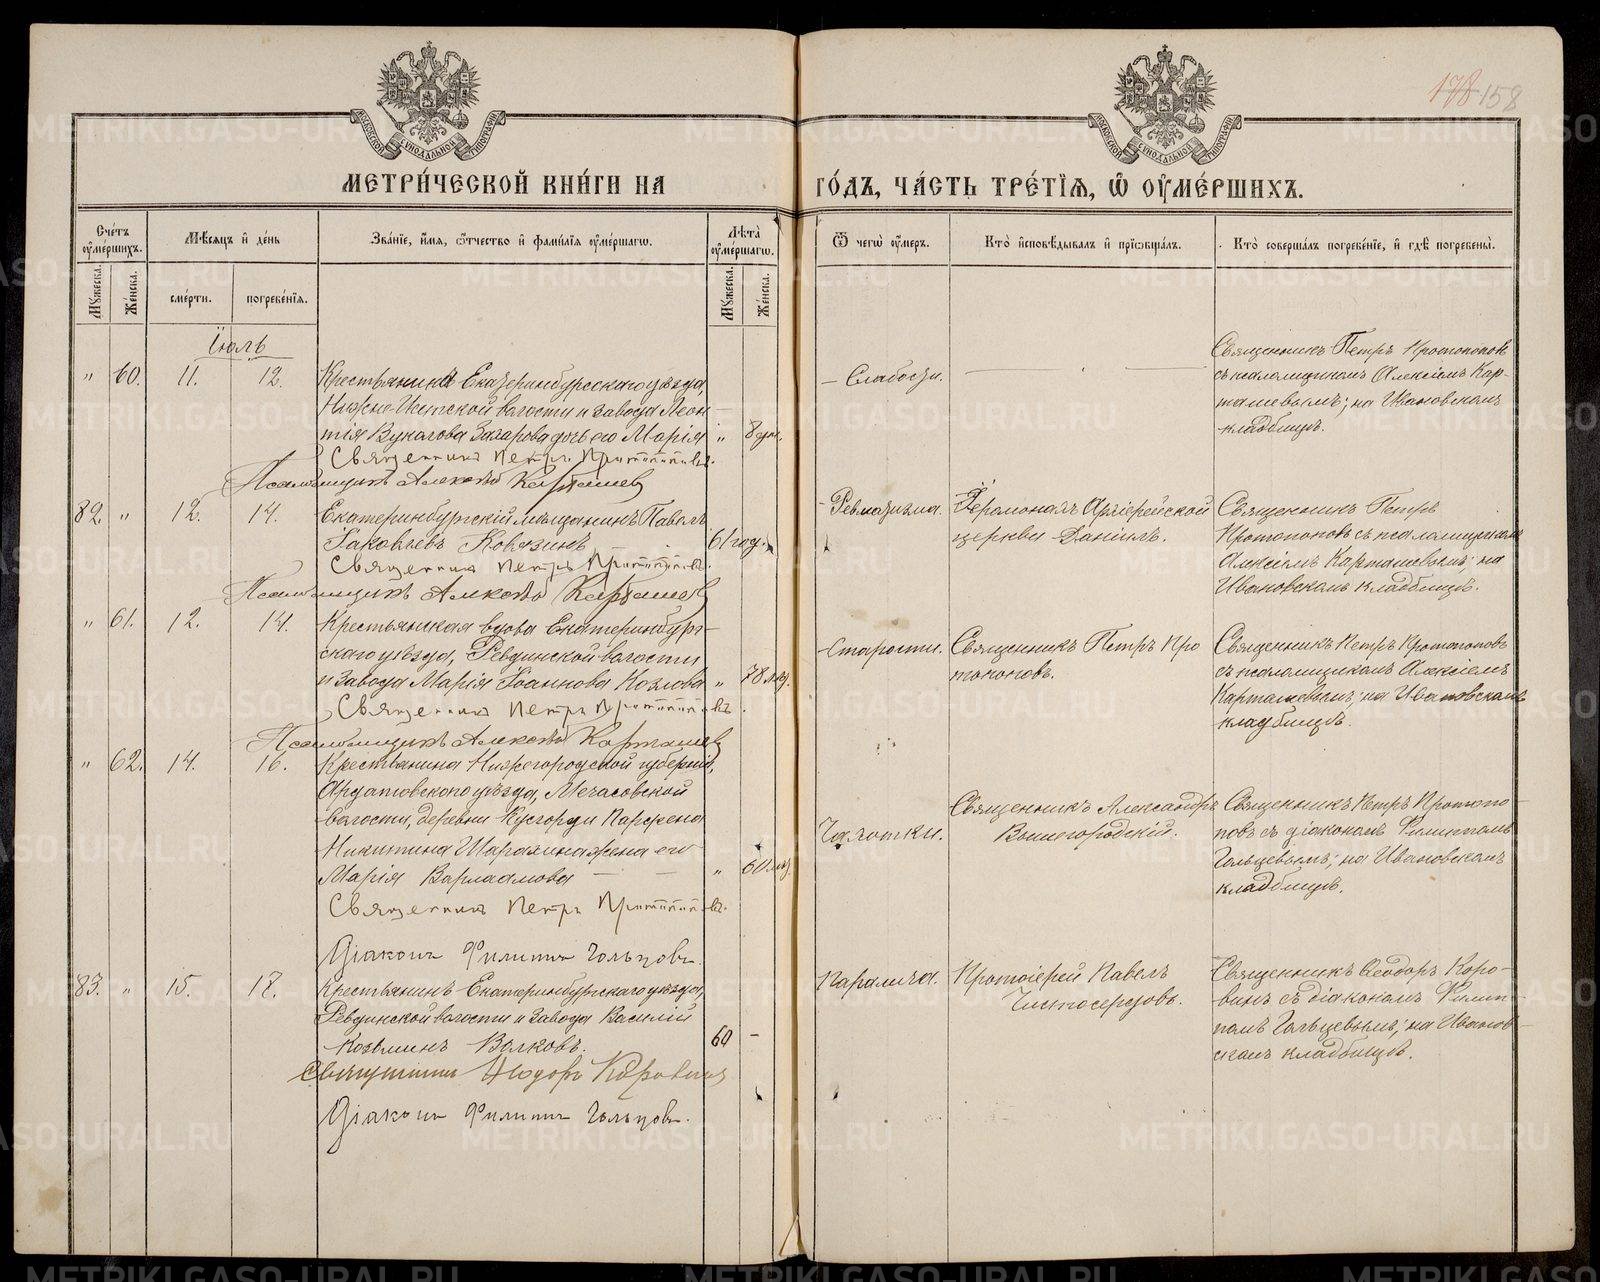 178 158
МОСКОВСКОЙ СѴНОДАЛЬНОЙ ТИПОГРАФІИ
МОСКОВСКОЙ СѴНОДАЛЬНОЙ ТИПОГРАФІИ
МЕТРИ́ЧЕСКОЙ КНИ́ГИ НА ГО́ДЪ, ЧА́СТЬ ТРЕ́ТІѦ, Ѡ҆ ОУ҆МЕ́РШИХЪ.
Сче́тъ оу҆ме́ршихъ.
Мꙋжеска.
Же́нска.
Мѣ́сѧцъ и҆ де́нь
сме́рти.
погребе́нїѧ.
Зва́нїе, и҆́мѧ, ѻ҆́тчество и҆ фамилїѧ оу҆ме́ршагѡ.
Лѣ́та оу҆ме́ршагѡ.
Мꙋжеска.
Же́нска.
Ѿ чегѡ̀ оу҆́меръ.
Кто̀ и҆сповѣ́дывалъ и҆ прїѡбща́лъ.
Кто̀ соверша́лъ погребе́нїе, и҆ гдѣ̀ погребены̀.
Іюль
" 60. 11. 12.
Крестьянина Екатеринбургскаго уѣзда,
Нижне-Исетской волости и завода Леон-
тія Вуколова Захарова дочь его Марія " 8 дн.
Священникъ Петръ Протопоповъ.
Псаломщикъ Алексѣй Карташев
Слабости.
Священникъ Петръ Протопопов
съ псаломщикомъ Алексіемъ Кар-
ташевымъ; на Ивановскомъ
кладбищѣ.
82. " 12. 14.
Екатеринбургскій мѣщанинъ Павелъ
Іаковлевъ Ковязинъ 61 год.
Священникъ Петръ Протопоповъ.
Псаломщикъ Алексѣй Карташев
Ревматизма.
Іеромонахъ Архіерейской
церкви Даніилъ.
Священникъ Петръ
Протопоповъ съ псаломщикомъ
Алексіемъ Карташевымъ; на
Ивановскомъ кладбищѣ.
" 61. 12. 14.
Крестьянская вдова Екатеринбург-
скаго уѣзда, Ревдинской волости
и завода Марія Іоаннова Козлова " 78 лѣт.
Священникъ Петръ Протопоповъ
Псаломщикъ Алексѣй Карташев
Старости.
Священникъ Петръ Про
топоповъ.
Священникъ Петръ Протопоповъ
съ псаломщикомъ Алексіемъ
Карташевымъ; на Ивановскомъ
кладбищѣ.
" 62. 14. 16.
Крестьянина Нижегородской губерніи,
Ардатовскаго уѣзда, Мечасовской
волости, деревни Кусгорди Парфена
Никитина жена его
Марія Варлаамова " 60 лѣт.
Священникъ Петръ Протопоповъ.
Діаконъ Филиппъ Гольцовъ.
Чахотки.
Священникъ Александръ
Вышегородскій.
Священникъ Петръ Протопо-
повъ съ діакономъ Филиппомъ
Гольцевымъ; на Ивановскомъ
кладбищѣ.
83. " 15. 17.
Крестьянинъ Екатеринбургскаго уѣзда,
Ревдинской волости и завода Василій
Козьминъ Волковъ. 60 -
Священникъ Ѳеодоръ Коровинъ
Діаконъ Филиппъ Гольцовъ.
Паралича.
Протоіерей Павелъ
Чистосердовъ.
Священникъ Ѳеодоръ Коро-
винъ съ діакономъ Филип-
помъ Гольцевымъ; на Иванов-
скомъ кладбищѣ.
METRIKI.GASO-URAL.RU